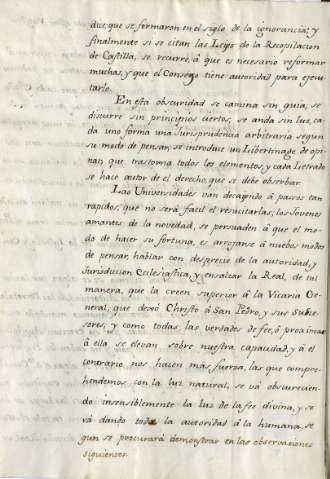 dios, que se formaron en el siglo de la ignorancia; y
finalmente si se citan las Leyes de la Recopilacion
de Castilla, se recurre, á que es necesario reformar
muchas, y que el Consejo tiene autoridad para ejecu-
tarlo.
En esta obscuridad se camina sin guia, se
discurre sin principios ciertos, se anda sin luz, ca-
da uno forma una Jurisprudencia arbitraria segun
su modo de pensar, se introduce un Libertinage de opi-
nar, que trastorna todos los elementos, y cada Letrado
se hace autor de el derecho, que se debe observar.
Las Universidades van decayendo á pasos tan
rapidos, que no será facil el resucitarlas; los Jovenes
amantes de la novedad, se persuaden á que el mo-
do de hacer su fortuna, es arrojarse á nuebos modos
de pensar, hablar con desprecio de la autoridad, y
Jurisdiccion Eclesiastica, y ensalzar la Real, de tal
manera, que la creen superior á la Vicaria Ge-
neral, que dexó Christo á San Pedro, y sus Subce-
sores; y como todas las verdades de fee, ó proximas
á ella se elevan sobre nuestra capacidad, y á el
contrario, nos hacen más fuerza, las que compre-
hendemos con la luz natural, se vá obscurecien-
do insensiblemente la luz de la fee divina, y se
vá dando toda la autoridad á la humana, se-
gun se procurará demonstrar en las observaciones
siguientes.